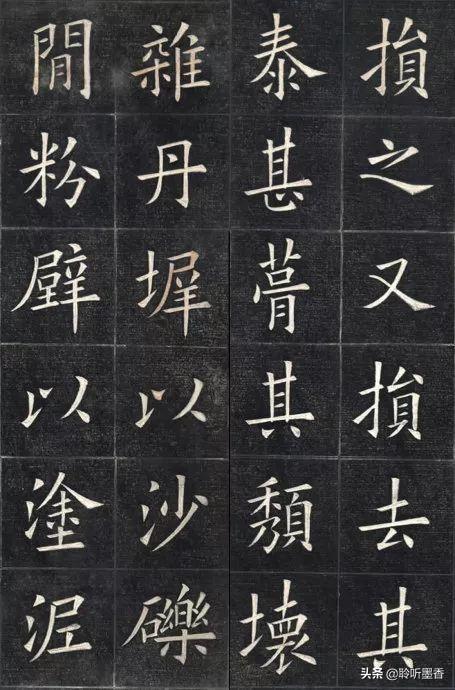 損之又損去其
泰甚葺其頹壞
雜丹墀以沙礫
閒粉壁以塗泥
头条 @聆听墨香